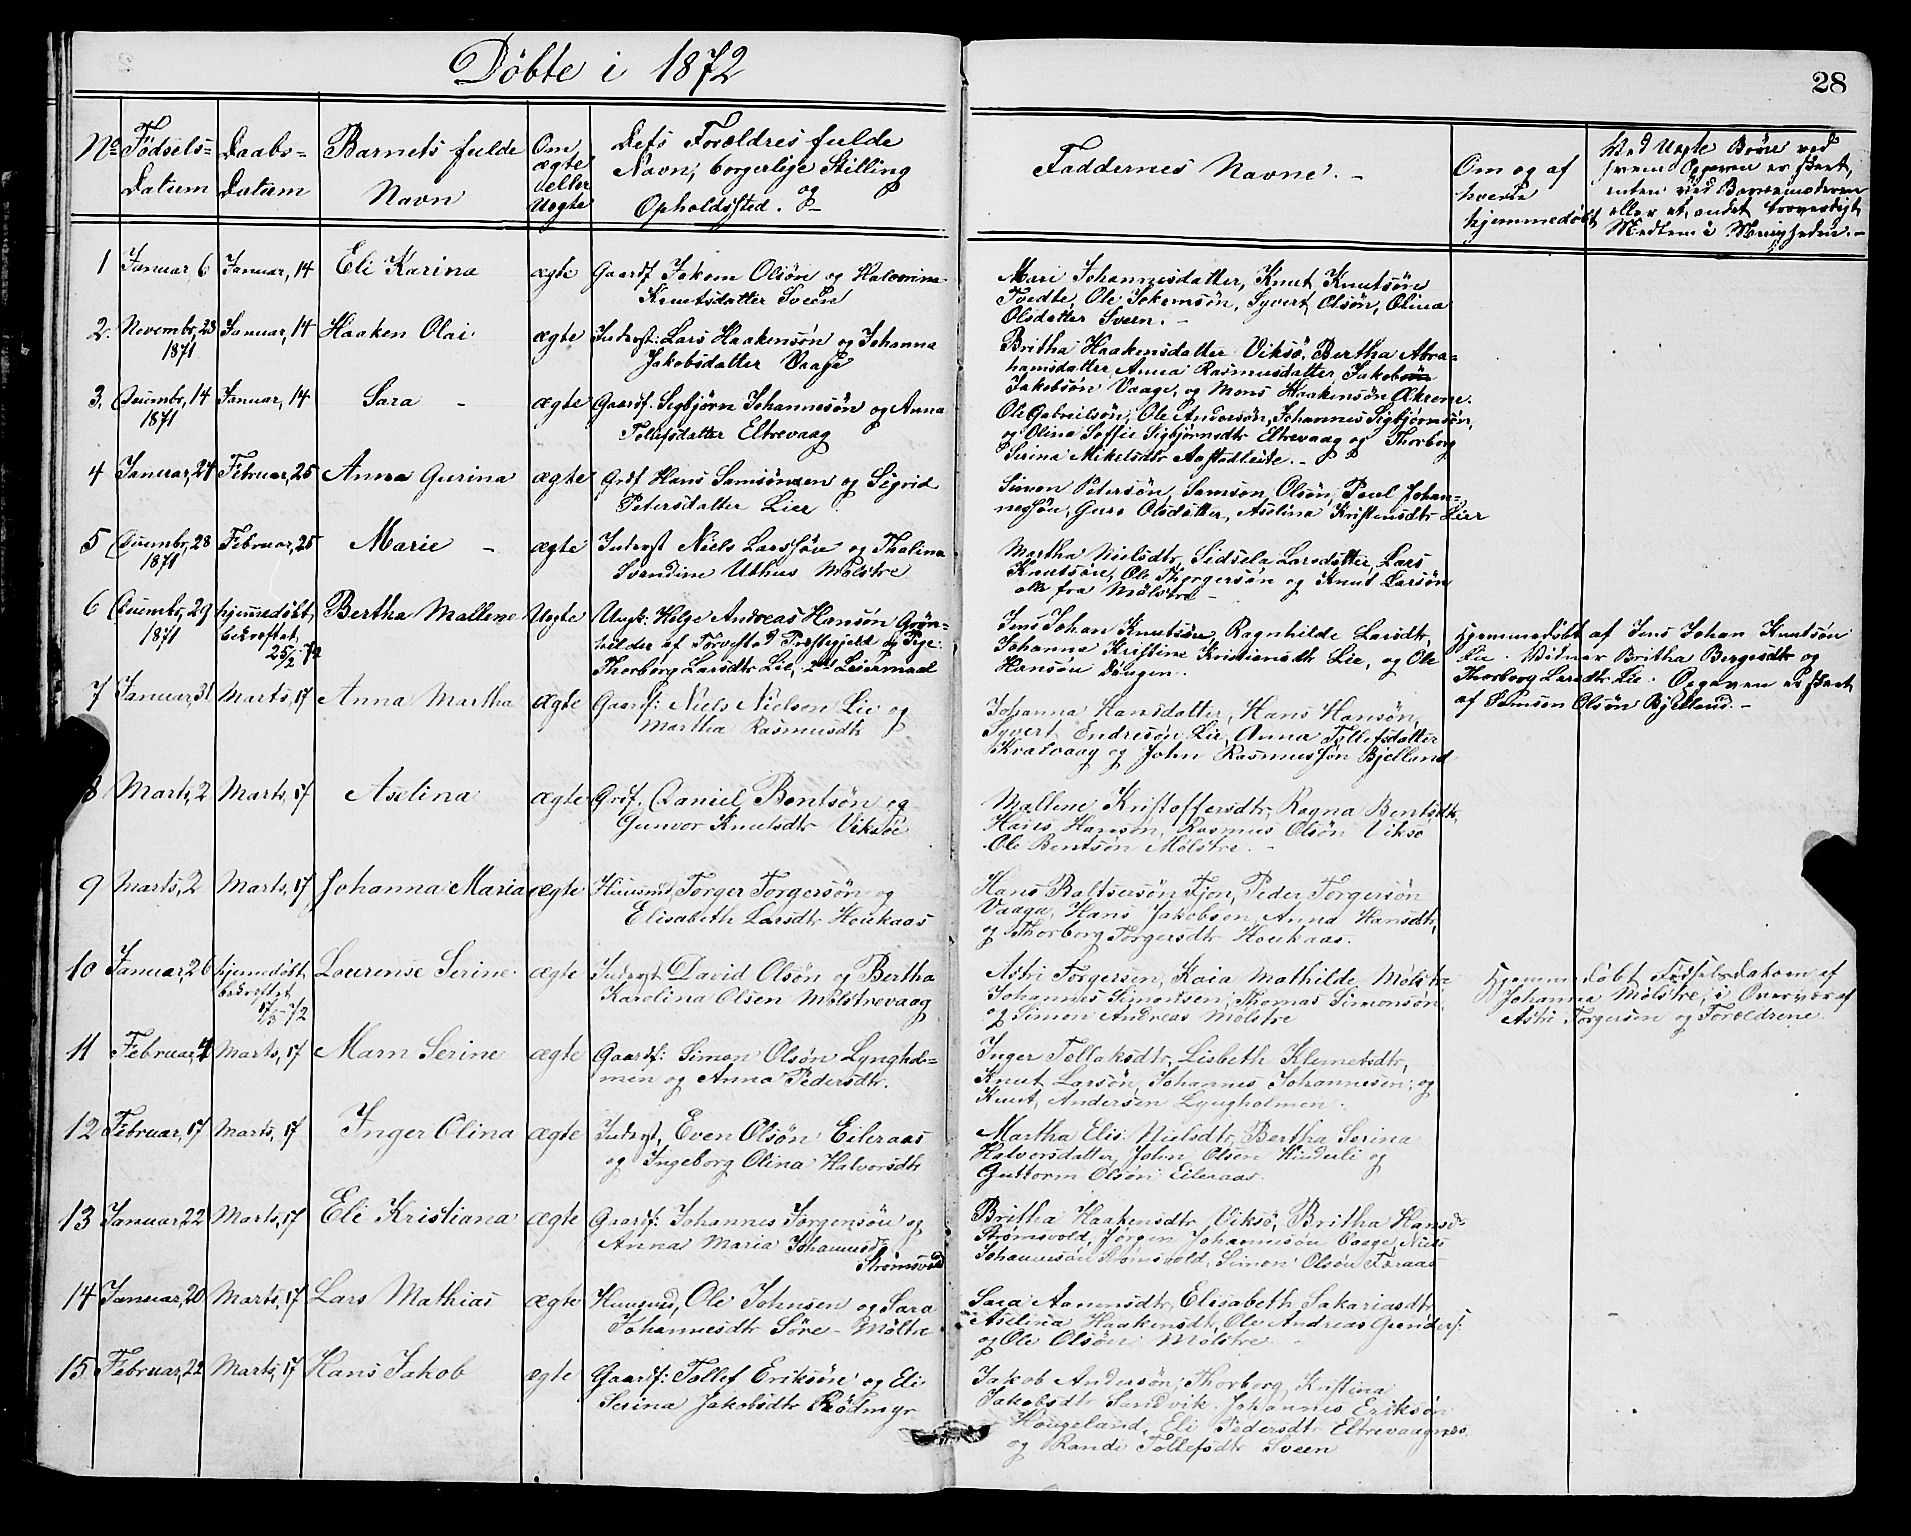 Döbte i 1872
28
No Födsels= Datum
Daabs= Datum
Barnets fulde Navn
Om ægte eller Uegte
Dets Forældres fulde Navn, borgerlige Stilling og Opholdssted.
Faddernes Navne. -
Om og af hvem hjemmedöbt
Ved Uegte Börn ved hvem Opgaven er skeet, enten ved Barnemoderen eller et andet troverdigt Medlem i Menigheden. -
1 Januar 6 Januar, 14 Eli Karina ægte Gaardf Jokem Olsön og Halvorina
Knutsdatter Sveen
Mari Johannesdatter, Knut Knutsön
Tvedte, Ole Jokemsön, Syvert Olsön, Olina
Olsdatter Sveen. -
2. Novembr, 23 Januar, 14 Haaken Olai ægte Inderst: Lars Haakensön og Johanna
1871 Jakobsdatter Vaage
Britha Haakensdatter Viksö, Bertha Abra=
hamsdatter, Anna Rasmusdatter, Jakobsön
Jakobsön Vaage, og Mons Haakensön Økrene.
3. Decembr, 14 Januar, 14 Sara - ægte Gaardf. Sigbjörn Johannesön og Anna
1871 Tollefsdatter Eltrevaag
Ole Gabreilsön, Ole Andersön, Johannes Sigbjörnsön,
og Olina Soffie Sigbjörnsdtr Eltrevaag og Thorborg
Serina Mikelsdtr
4 Januar, 24 Februar, 25 Anna Gurina ægte Grdf Hans Samsönsen og Sigrid
Petersdatter Lier
Simon Petersön, Samson Olsön, Poul Johan=
nessön, Guro Olsdatter, Aselina Kristensdtr Lier
5 Decembr, 28 Februar, 25 Marie - ægte Inderst Niels Larssön og Thalina
1871 Svendine Uthus Mölstre
Martha Nielsdtr, Sidsela Larsdatter, Lars
Knutsön, Ole Thorgersön og Knut Larsön
alle fra Mölstre -
6 Decembr, 29 hjemmedöbt, Bertha Mallene Uegte Ungk: Helge Andreas Hansön Grön=
1871 bekræftet hilder af Torvestad Præstegjeld og Pige
25/2 72 Thorborg Larsdtr Lie, 2det Leiermaal
Jens Johan Knutsön, Ragnhilde Larsdtr,
Johanna Kristine Kristiensdtr Lie, og Ole
Hansön
Hjemmedöbt af Jens Johan Knutsön
Lie. Vidner Britha Bergesdtr og
Thorborg Larsdtr Lie. Opgaven er skeet
af Samson Olsön Bjelland. -
7 Januar, 31 Marts, 17 Anna Martha ægte Gaardf: Niels Nielsen Lie og
Martha Rasmusdtr
Johanna Hansdatter, Hans Hansön,
Syvert Endresön Lie, Anna Tollefsdatter
Kvalvaag og John Rasmussön Bjelland
8 Marts, 2 Marts, 17 Aselina ægte Grdf. Daniel Bentsön og
Gunvor Knutsdtr Viksöe
Mallene Kristoffersdtr, Ragna Bentsdtr,
Hans Hansön, Rasmus Olsön Viksö
Ole Bentsön Mölstre. -
9 Marts, 2 Marts, 17 Johanna Maria ægte Huusmd, Torger Torgersön og
Elisabeth Larsdtr Houkaas
Hans Baltsersön Tjon, Peder Torgersön
Vaage, Hans Jakobson, Anna Hansdtr,
og Thorborg Torgersdtr Houkaas.
10 Januar, 26 hjemedöbt, Lourense Serine. ægte Inderst David Olsön og Bertha
bekræftet Karolina Olsen Mölstrevaag
17/3 72
Astri Torgersen, Kaia Mathilde Mölstr=
Johannes Simonsen, Thomas Simonsön,
og Simon Andreas Mölstre
Hjemmedöbt Födselsdatoen af
Johanna Mölstre, i Overvær af
Astri Torgersen og Forældrene.
11 Februar, 4 Marts, 17 Marn Serine ægte Gaardf: Simon Olsön Lynghol=
men og Anna Pedersdtr.
Inger Tollaksdtr, Lisbeth Klemetsdtr,
Knut Larsön, Johannes Johannesen, og
Knut Andersen Lyngholmen.
12 Februar, 17 Marts, 17 Inger Olina ægte Inderst, Even Olsön Eileraas
og Ingeborg Olina Halvorsdtr
Martha Elis. Nielsdtr, Bertha Serina
Halversdatter, John Olsen Kinderli og
Guttorm Olsön Eileraas.
13 Januar, 22 Marts, 17 Eli Kristiana ægte Gaardf: Johannes Jörgensön og
Anna Maria Johannesd.
Strömsvold
Britha Haakensdtr Viksö, Britha Hansd=
Strömsvold, Jörgen Johannesön Vaage, Niels
Johannesön Strömsvold, Simon Olsön Föraas
14 Januar, 20 Marts, 17 Lars Mathias ægte Huusmd, Ole Johnsen og Sara
Johannesdtr Söre- Mölte
Sara Aamensdtr, Elisabeth Sakariasdtr,
Aselina Haakensdtr, Ole Andreas Gunders:
og Ole Olsön Mölstre. -
15 Februar, 22 Marts, 17 Hans Jakob ægte Gaardf: Tollef Eriksön og Eli
Serina Jakobsdtr Rödmyr
Jakob Andersön, Thorborg Kristina
Jakobsdtr Sandvik. Johannes Eriksön
Hougeland, Eli Pedersdtr Eltrevaagnæs
og Randi Tollefsdtr Sveen